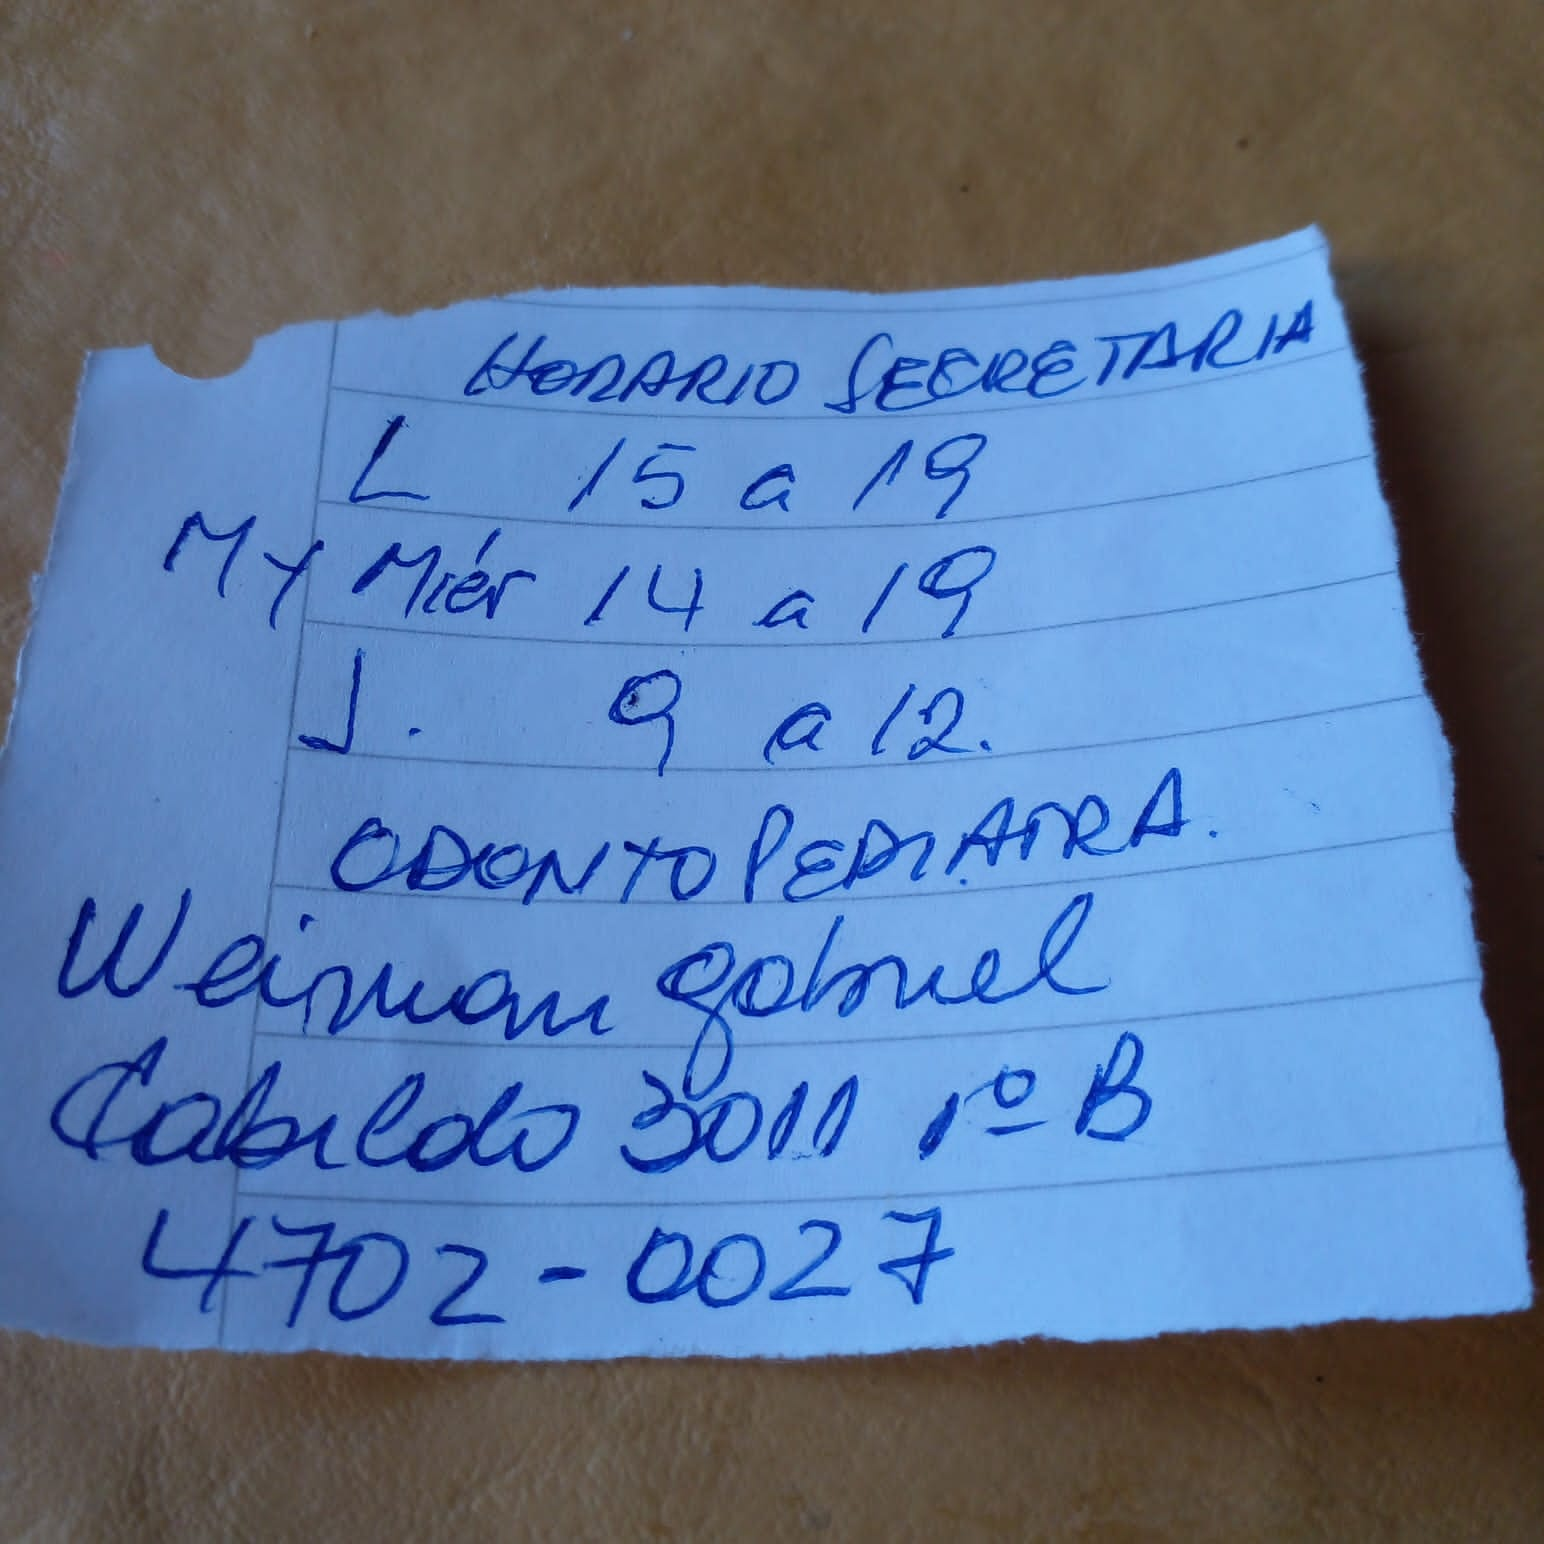 HORARIO SECRETARIA
L 15 a 19
M y Miér 14 a 19
J. 9 a 12.
ODONTOPEDIATRA.
Weinman gabriel
Cabildo 3011 1º B
4702-0027